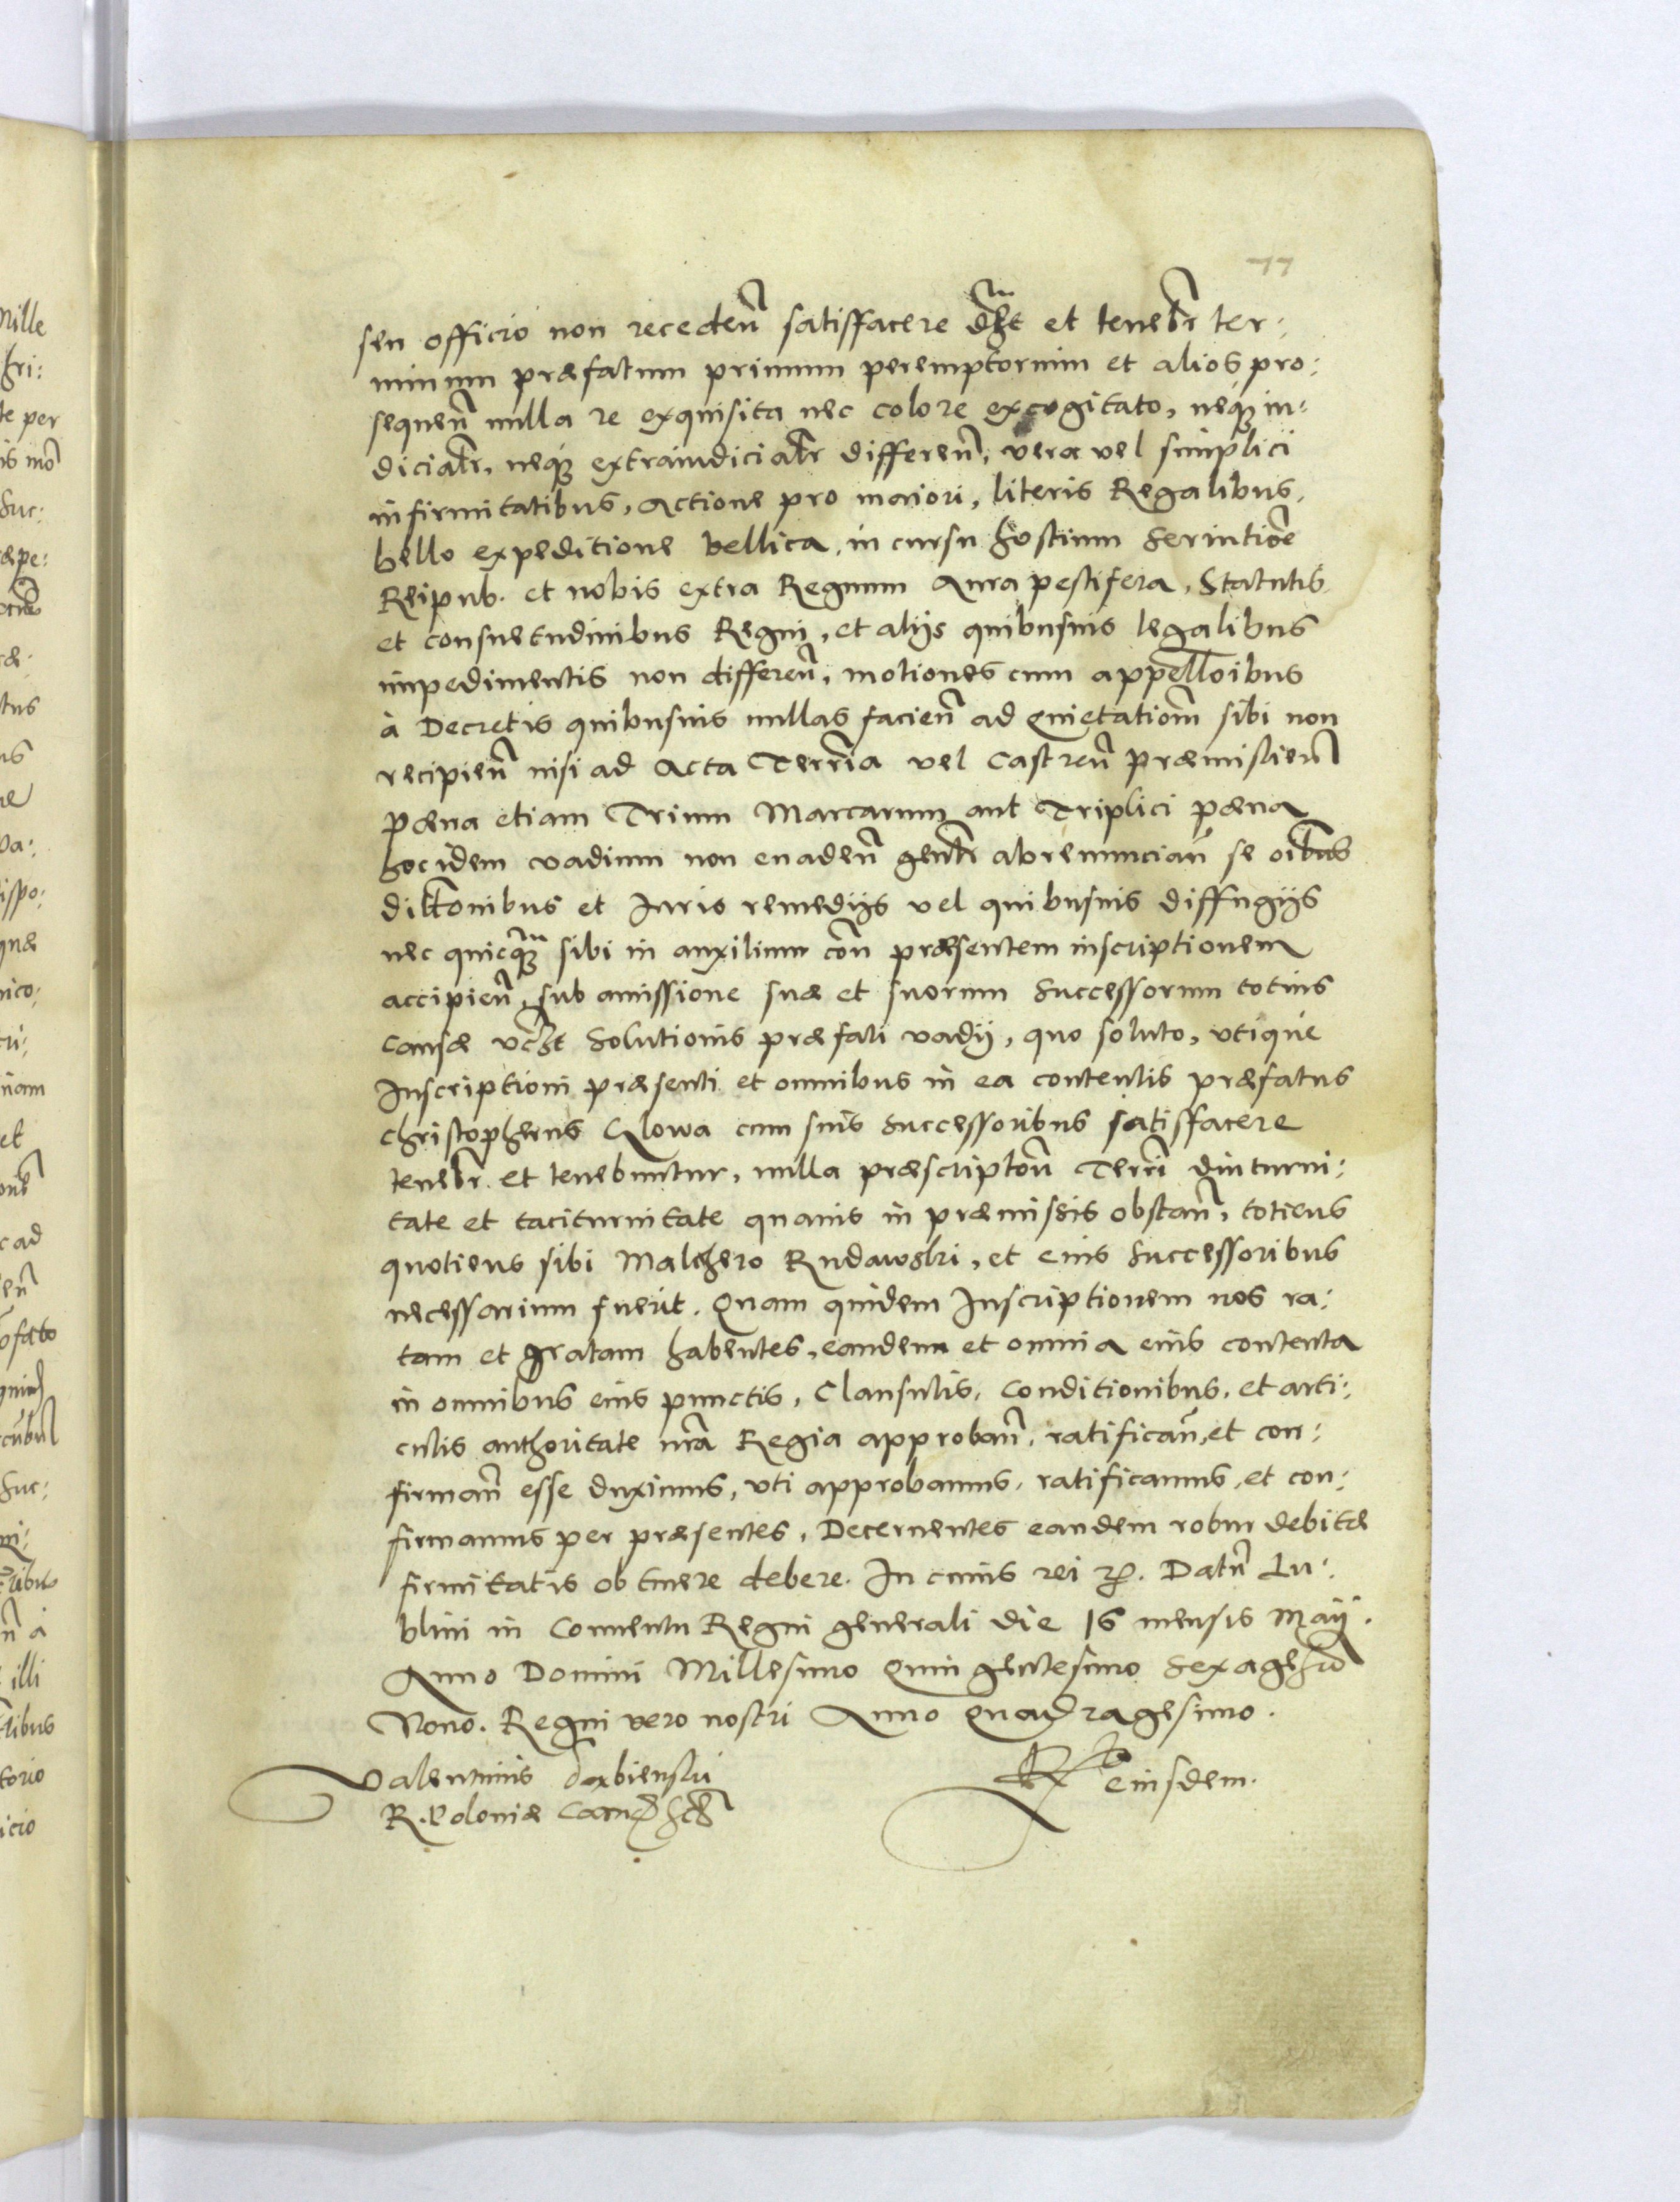 77
seu officio non recedeñ satisfacere debet et tenebr̄ ter:
minum præfatum primum peremptorium et alios pro:
sequeñ nulla re exquisita nec colore excogitato, neq̃ iu:
diciar̄, neq̃ extraiudiciar̄ differeñ, vera vel simplici
infirmitatibus, actione pro maiori, literis Regalibus,
bello expeditione bellica, in cursu hostium Seruitiōe
Reipub. et nobis extra Regnum aura pestifera, Statutis
et consuetudinibus Regni, et alijs quibusuis legalibus
impedimentis non differeñ, motiones cum appellōibus
à Decretis quibusuis nullas facieñ ad Quietatiōm sibi non
recipieñ nisi ad Acta Terrīa vel Castreñ Præmislieñ
Pæna etiam Trium Marcarum aut Triplici pæna
hoc idem vadium non euadeñ genlr̄ abrenunciañ se oībus
diltōnibus et Juris remedijs vel quibusuis diffugijs
nec quicq̃ sibi in auxilium coñ præsentem inscriptionem
accipieñ, sub amissione suæ et suorum Successorum totius
Causæ vclt Solutionis præfati vadij, quo soluto, vtique
Inscriptioni præsenti et omnibus in ea contentis præfatus
Christopherus Glowa cum suis Successoribus satisfacere
tenebr̄. et tenebuntur, nulla præscriptōn Terrī diuturni:
tate et taciturnitate quauis in præmissis obstañ, totiens
quotiens sibi Malchero Rudawski, et eius Successoribus
necessarium fuerit. Quam quidem Inscriptionem nos ra:
tam et gratam habentes, eandem et omnia eius contenta
in omnibus eius punctis, Clausulis, Conditionibus, et arti:
culis authoritate nr̄a Regia approbañ, ratificañ, et con:
firmañ esse duximus, vti approbamus, ratificamus, et con:
firmamus per præsentes, Decernentes eandem robur debitæ
firmitatis obtinere debere. In cuius rei ꝛ. Datñ Lu:
blini in Conuentu Regni generali die 16 mensis Maij.
Anno Domini Millesimo Quingentesimo Sexagesīo
Nono. Regni vero nostri Anno Quadragesimo.
Valentinus Dembienski
R. Poloniæ Canc̃ sst
Rta eiusdem.